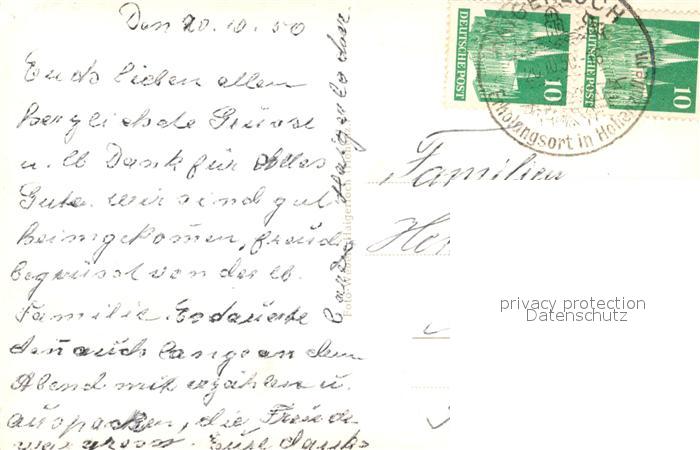 Den 20.10.50
Euch lieben allen
herzlichste Grüsse
u. lb Dank für Alles
Gute. wir sind gut
heimgekomen, freudig
begrüsst von der lb.
Familie. Es dauerte
den auch lange an dem
Abend mit erzählen u.
auspacken, die Freude
war gross. Eure dankb
Haigerloch
DEUTSCHE POST
10
DEUTSCHE POST
10
HAIGERLOCH
Erholungsort in Hohen
Familien
privacy protection
Datenschutz